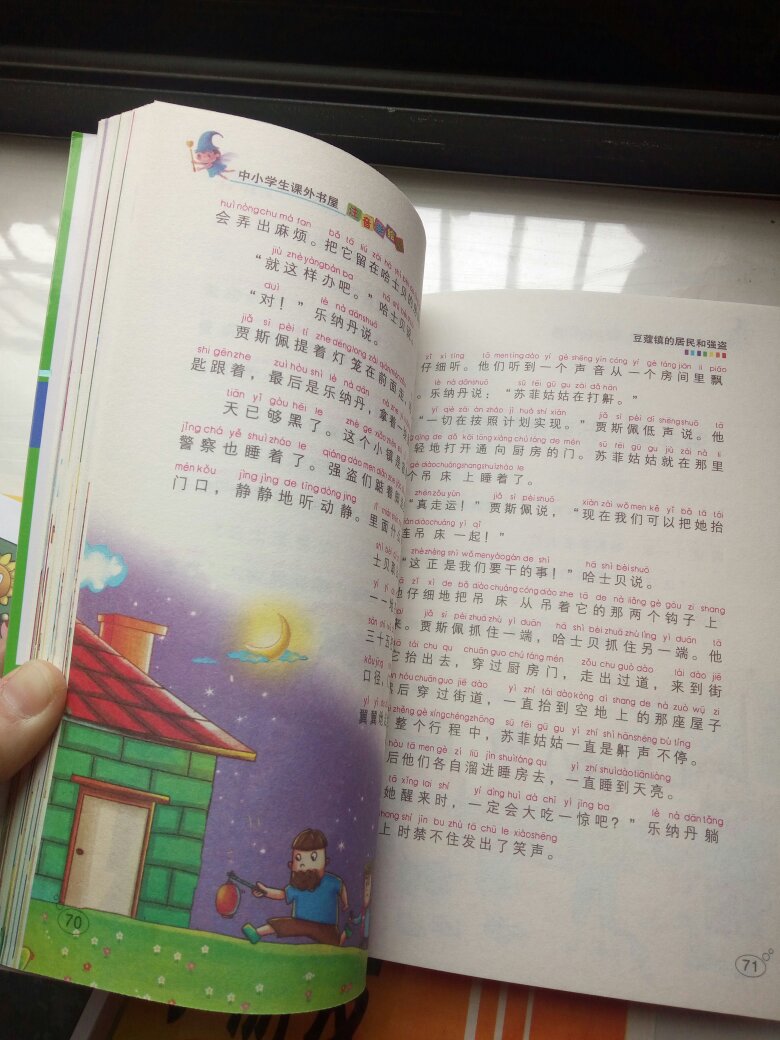 中小学生课外书屋
注音
huì nòng chu má fan bǎ tā liú zài hā shì bèi
会弄出麻烦。把它留在哈士贝的
jiù zhè yàng bàn ba
“就这样办吧。”哈士贝说
duì lè nà dān shuō
“对！”乐纳丹说。
jiǎ sī pèi tí zhe dēng lóng zài qián miàn
贾斯佩提着灯笼在前面走，
shi gēn zhe zuì hòu shì lè nà dān ná zhe
匙跟着，最后是乐纳丹，拿着一
tiān yǐ gòu hēi le zhè ge xiǎo zhèn
天已够黑了。这个小镇是
jǐng chá yě shuì zháo le qiáng dào men
警察也睡着了。强盗们踮着脚
mén kǒu jìng jìng de tīng dòng jing
门口，静静地听动静。里面什
士贝
一一
三十五
口径
翼翼地
70
豆蔻镇的居民和强盗
zǐ xì tīng tā men tīng dào yí gè shēng yīn cóng yí gè fáng jiān lǐ piāo
仔细听。他们听到一个声音从一个房间里飘
lè nà dān shuō sū fēi gū gu zài dǎ hān
。乐纳丹说：“苏菲姑姑在打鼾。”
yí qiè zài àn zhào jì huà shí xiàn jiǎ sī pèi dī shēng shuō tā
“一切在按照计划实现。”贾斯佩低声说。他
qīng de dǎ kāi tōng xiàng chú fáng de mén sū fēi gū gu jiù zài nà li
轻地打开通向厨房的门。苏菲姑姑就在那里
gè diào chuáng shang shuì zháo le
个吊床上睡着了。
zhēn zǒu yùn jiǎ sī pèi shuō xiàn zài wǒ men kě yǐ bǎ tā tái
“真走运！”贾斯佩说，“现在我们可以把她抬
lián diào chuáng yì qǐ
连吊床一起！”
zhè zhèng shì wǒ men yào gàn de shì hā shì bèi shuō
“这正是我们要干的事！”哈士贝说。
tā zǐ xì de bǎ diào chuáng cóng diào zhe tā de nà liǎng gè gōu zi shang
也仔细地把吊床从吊着它的那两个钩子上
jiǎ sī pèi zhuā zhù yì duān hā shì bèi zhuā zhù lìng yì duān tā
来。贾斯佩抓住一端，哈士贝抓住另一端。他
tā tái chu qu chuān guo chú fáng mén zǒu chu guò dào lái dào jiē
它抬出去，穿过厨房门，走出过道，来到街
hòu chuān guo jiē dào yì zhí tái dào kòng dì shang de nà zuò wū zi
后穿过街道，一直抬到空地上的那座屋子
zhěng gè xíng chéng zhōng sū fēi gū gu yì zhí shì hān shēng bù tíng
整个行程中，苏菲姑姑一直是鼾声不停。
hòu tā men gè zì liū jìn shuì fáng qù yì zhí shuì dào tiān liàng
后他们各自溜进睡房去，一直睡到天亮。
tā xǐng lai shí yí dìng huì dà chī yì jīng ba lè nà dān tǎng
她醒来时，一定会大吃一惊吧？”乐纳丹躺
shang shí jīn bu zhù fā chū le xiào shēng
上时禁不住发出了笑声。
71